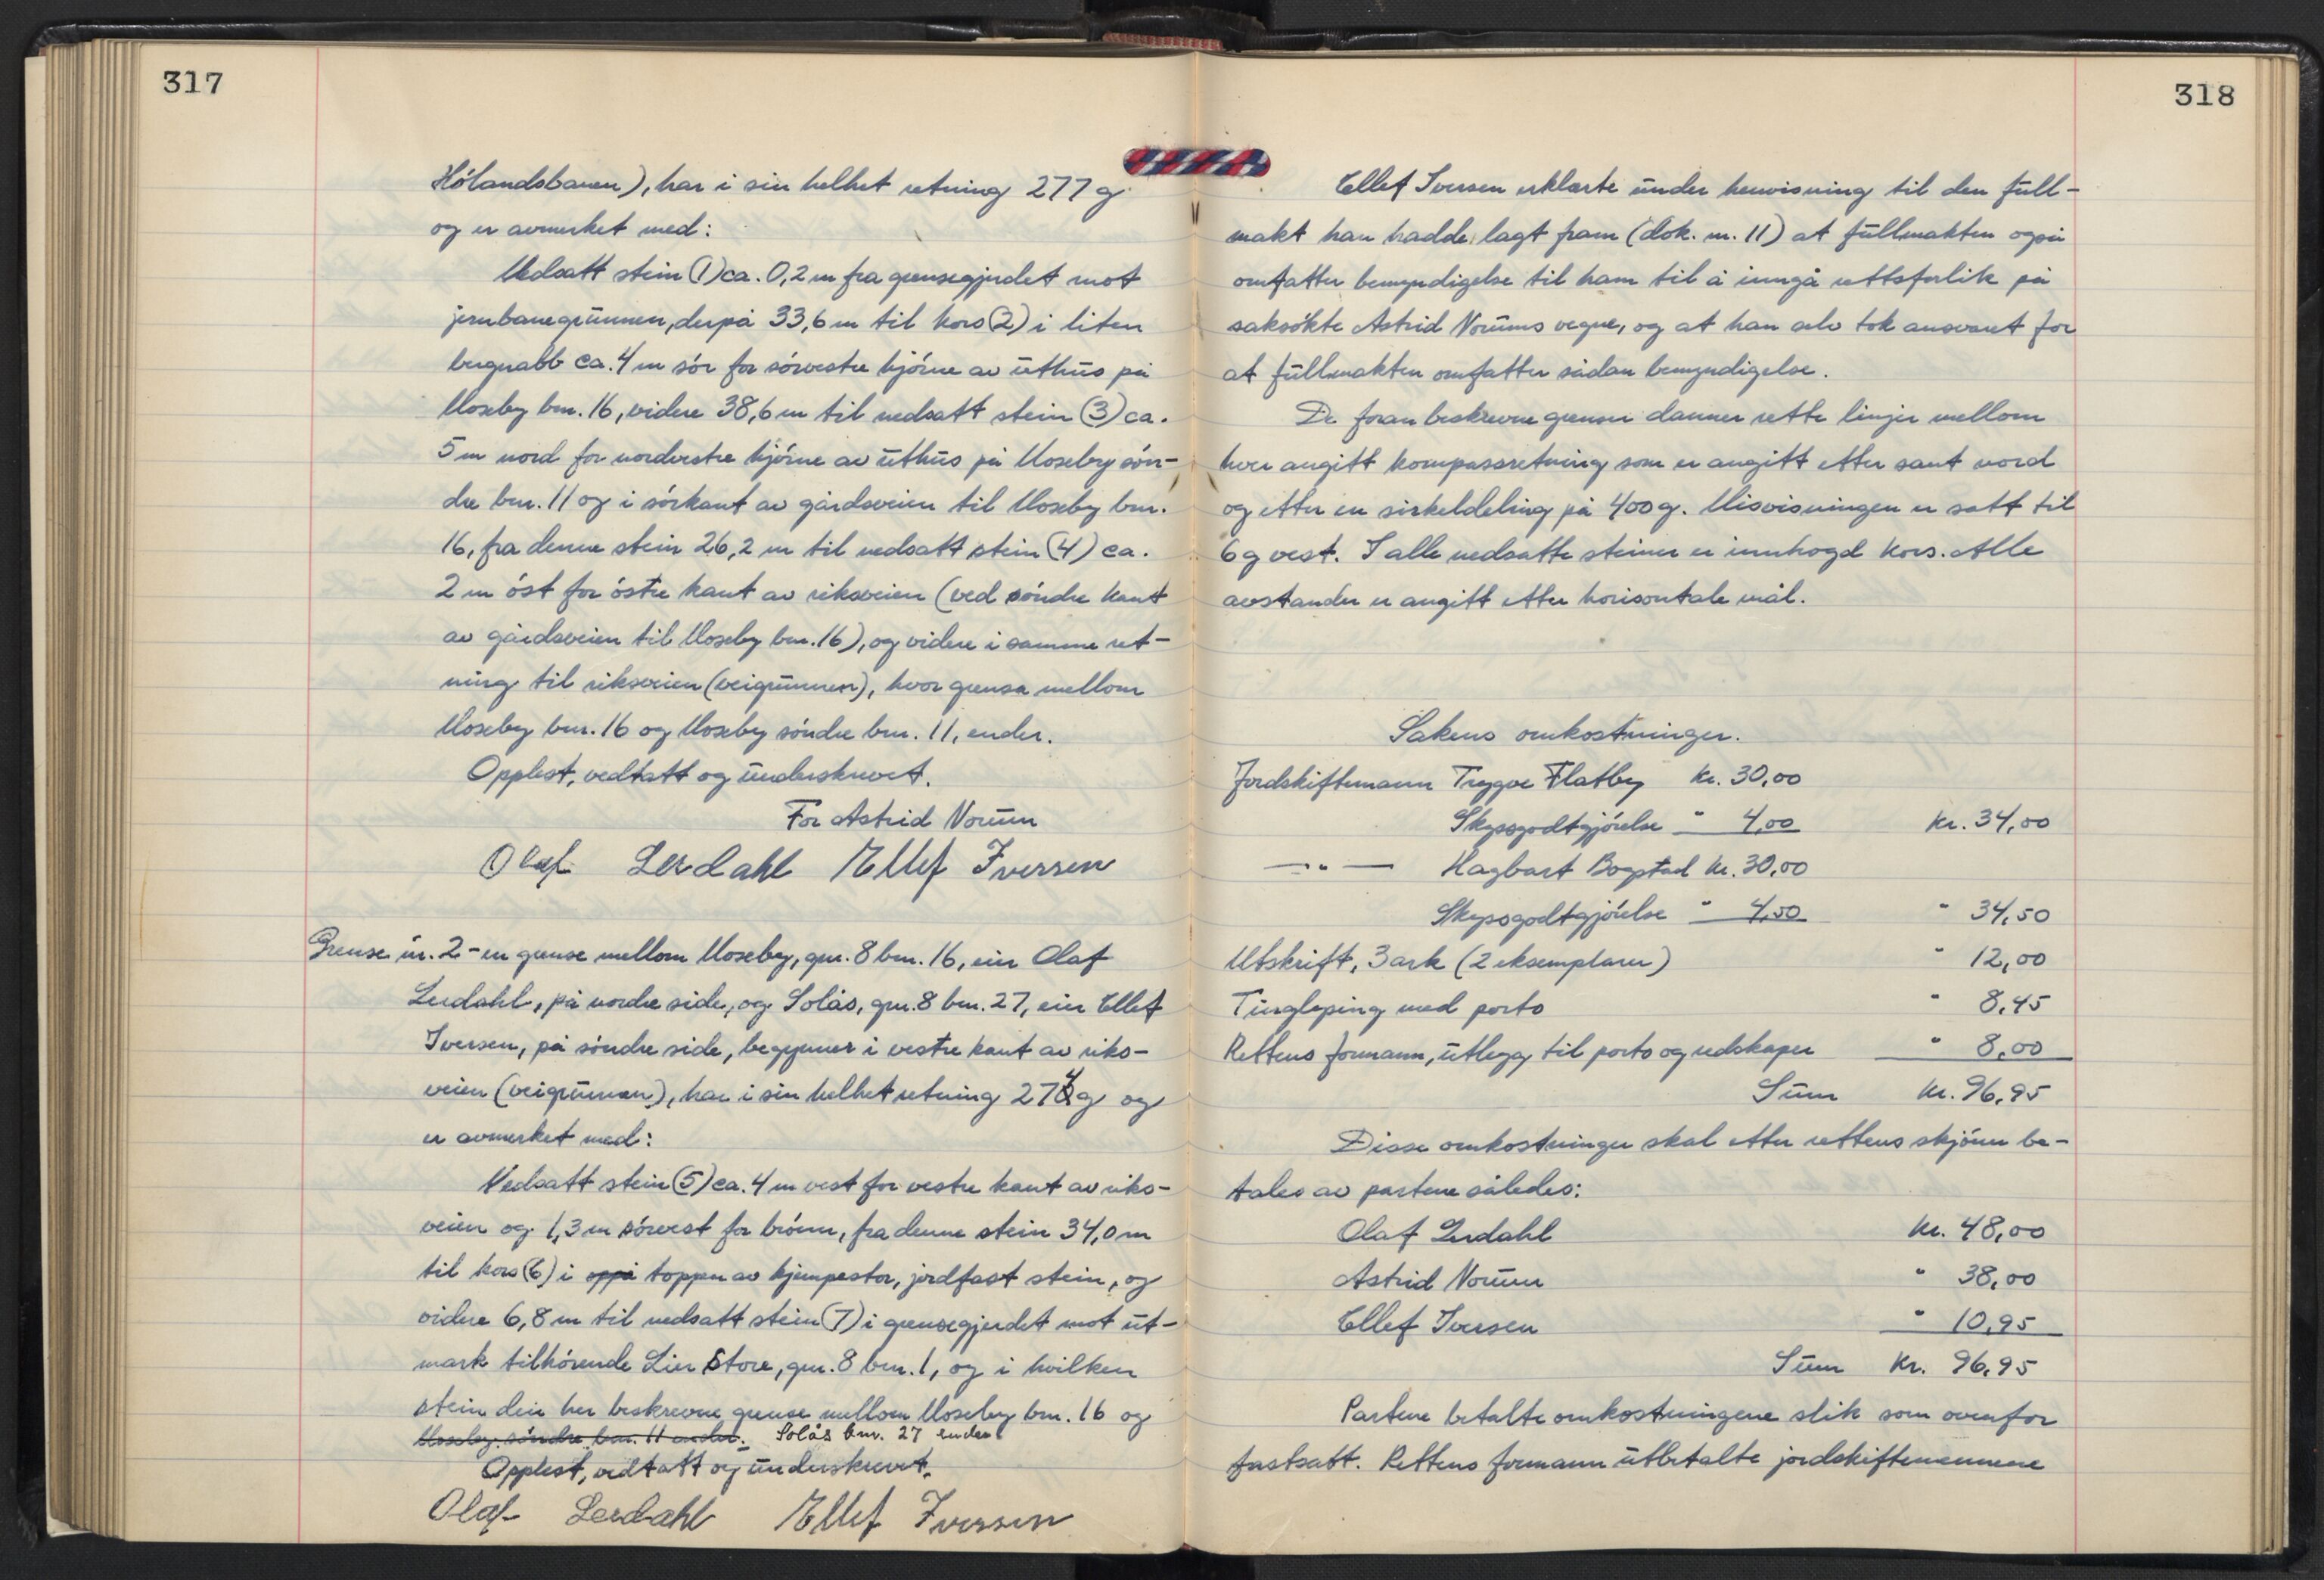 317
Hólandsbanen), har i sin helhet retning 277 g
og er avmerket med:
Nedsatt stein (1) ca. 0,2 m fra grensegjerdet mot
jernbanegrunnen, derpå 33,6 m til kors (2) i liten
bergnabb ca. 4 m sór for sórvestre hjórne av uthus på
Moseby bnr. 16, videre 38,6 m til nedsatt stein (3) ca.
5 m nord for nordvestre hjórne av uthus på Moseby són-
dre bnr. 11 og i sórkant av gårdsveien til Moseby bnr.
16, fra denne stein 26,2 m til nedsatt stein (4) ca.
2 m óst for óstre kant av riksveien (ved sóndre kant
av gårdsveien til Moseby bnr. 16), og videre i samme ret-
ning til riksveien (veigrunnen), hvor grensa mellom
Moseby bnr. 16 og Moseby sóndre bnr. 11, ender.
Opplest, vedtatt og underskrevet.
For Astrid Norum
Olaf Lerdahl Ellef Iversen
Grense nr. 2 - en grense mellom Moseby, gnr. 8 bnr. 16, eier Olaf
Lerdahl, på nordre side, og Solås, gnr. 8 bnr. 27, eier Ellef
Iversen, på sóndre side, begynner i vestre kant av riks-
veien (veigrunnen), har i sin helhet retning 274 g og
er avmerket med:
Nedsatt stein (5) ca. 4 m vest for vestre kant av riks-
veien og 1,3 m sórvest for brónn, fra denne stein 34,0 m
til kors (6) i oppå toppen av kjempestor, jordfast stein, og
videre 6,8 m til nedsatt stein (7) i grensegjerdet mot ut-
mark tilhórende Lier Store, gnr. 8 bnr. 1, og i hvilken
stein den her beskrevne grense mellom Moseby bnr. 16 og
Moseby sóndre bnr. 11 ender. Solås bnr. 27 ender
Opplest, vedtatt og underskrevet.
Olaf Lerdahl Ellef Iversen
318
Ellef Iversen erklærte under henvisning til den full-
makt han hadde lagt fram (dok. nr. 11) at fullmakten også
omfatter bemyndigelse til ham til å inngå rettsforlik på
saksókte Astrid Norums vegne, og at han selv tok ansvaret for
at fullmakten omfatter sådan bemyndigelse.
De foran beskrevne grenser danner rette linjer mellom
hver angitt kompassretning som er angitt etter sant nord
og etter en sirkeldeling på 400 g. Misvisningen er satt til
6 g vest. I alle nedsatte steiner er innhogd kors. Alle
avstander er angitt etter horisontale mål.
Sakens omkostninger.
Jordskiftemann Trygve Flatby kr. 30,00
Skyssgodtgjórelse " 4,00 kr. 34,00
— " — Hagbart Bogstad kr. 30,00
Skyssgodtgjórelse " 4,50 " 34,50
Utskrift, 3 ark (2 eksemplarer) " 12,00
Tinglysing med porto " 8,45
Rettens formann, utlegg til porto og redskaper " 8,00
Sum kr. 96,95
Disse omkostninger skal etter rettens skjónn be-
tales av partene således:
Olaf Lerdahl kr. 48,00
Astrid Norum " 38,00
Ellef Iversen " 10,95
Sum kr. 96,95
Partene betalte omkostningene slik som ovenfor
fastsatt. Rettens formann utbetalte jordskiftemennene